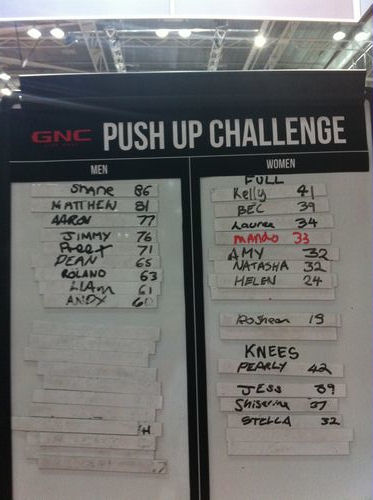 GNC
PUSH UP CHALLENGE
MEN
Shane 86
MATTHEW 81
AARON 77
JIMMY 76
Preet 71
DEAN 65
ROLAND 63
LIAM 61
ANDY 60
WOMEN
FULL
Kelly 41
BEC 39
Lauren 34
MANDO 33
AMY 32
NATASHA 32
HELEN 24
19
KNEES
PEARLY 42
JESS 39
37
STELLA 32